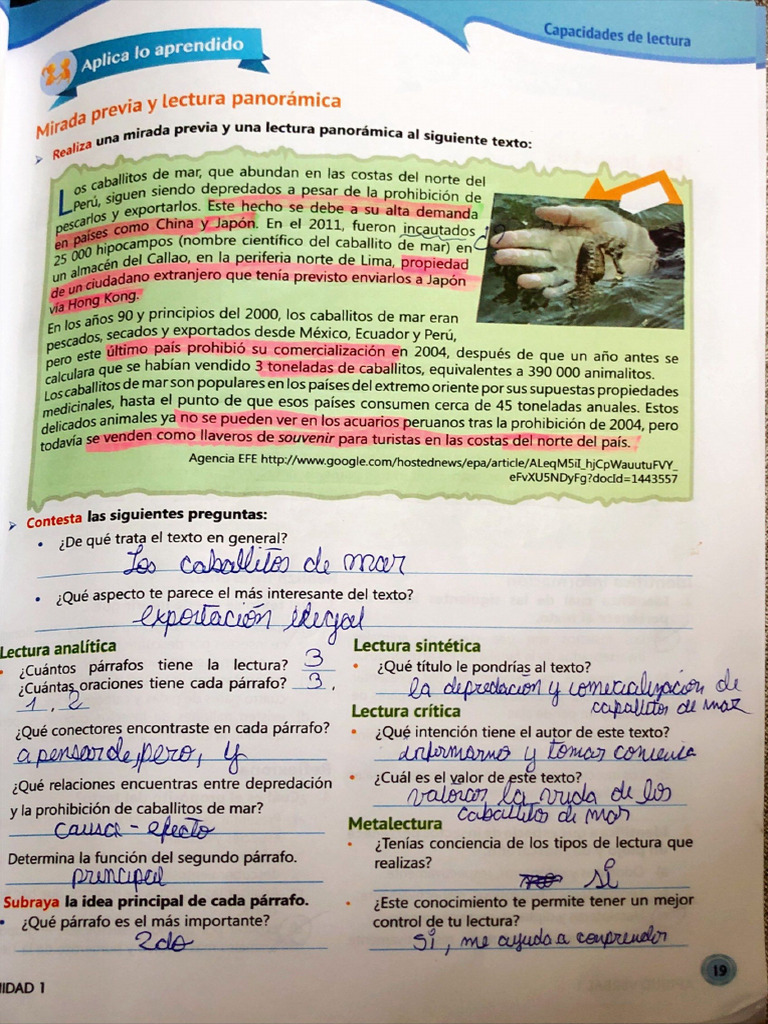 Capacidades de lectura
Aplica lo aprendido
Mirada previa y lectura panorámica
Realiza una mirada previa y una lectura panorámica al siguiente texto:
Los caballitos de mar, que abundan en las costas del norte del
Perú, siguen siendo depredados a pesar de la prohibición de
pescarlos y exportarlos. Este hecho se debe a su alta demanda
en países como China y Japón. En el 2011, fueron incautados
25 000 hipocampos (nombre científico del caballito de mar) en
un almacén del Callao, en la periferia norte de Lima, propiedad
de un ciudadano extranjero que tenía previsto enviarlos a Japón
vía Hong Kong.
En los años 90 y principios del 2000, los caballitos de mar eran
pescados, secados y exportados desde México, Ecuador y Perú,
pero este último país prohibió su comercialización en 2004, después de que un año antes se
calculara que se habían vendido 3 toneladas de caballitos, equivalentes a 390 000 animalitos.
Los caballitos de mar son populares en los países del extremo oriente por sus supuestas propiedades
medicinales, hasta el punto de que esos países consumen cerca de 45 toneladas anuales. Estos
delicados animales ya no se pueden ver en los acuarios peruanos tras la prohibición de 2004, pero
todavía se venden como llaveros de souvenir para turistas en las costas del norte del país.
Agencia EFE http://www.google.com/hostednews/epa/article/ALeqM5iI_hjCpWauutuFVY_
eFvXU5NDyFg?docId=1443557
Contesta las siguientes preguntas:
• ¿De qué trata el texto en general?
Los caballitos de mar
• ¿Qué aspecto te parece el más interesante del texto?
exportación ilegal
Lectura analítica
• ¿Cuántos párrafos tiene la lectura? 3
¿Cuántas oraciones tiene cada párrafo? 3,
1, 2
¿Qué conectores encontraste en cada párrafo?
a pensar de, pero, y
¿Qué relaciones encuentras entre depredación
y la prohibición de caballitos de mar?
causa - efecto
Determina la función del segundo párrafo.
principal
Subraya la idea principal de cada párrafo.
• ¿Qué párrafo es el más importante?
2do
Lectura sintética
• ¿Qué título le pondrías al texto?
la depredación y comercialización de
caballitos de mar
Lectura crítica
• ¿Qué intención tiene el autor de este texto?
informarno y tomar
• ¿Cuál es el valor de este texto?
valorar la vida de los
caballitos de mar
Metalectura
• ¿Tenías conciencia de los tipos de lectura que
realizas?
si
• ¿Este conocimiento te permite tener un mejor
control de tu lectura?
si, me ayuda a comprender
19
IDAD 1